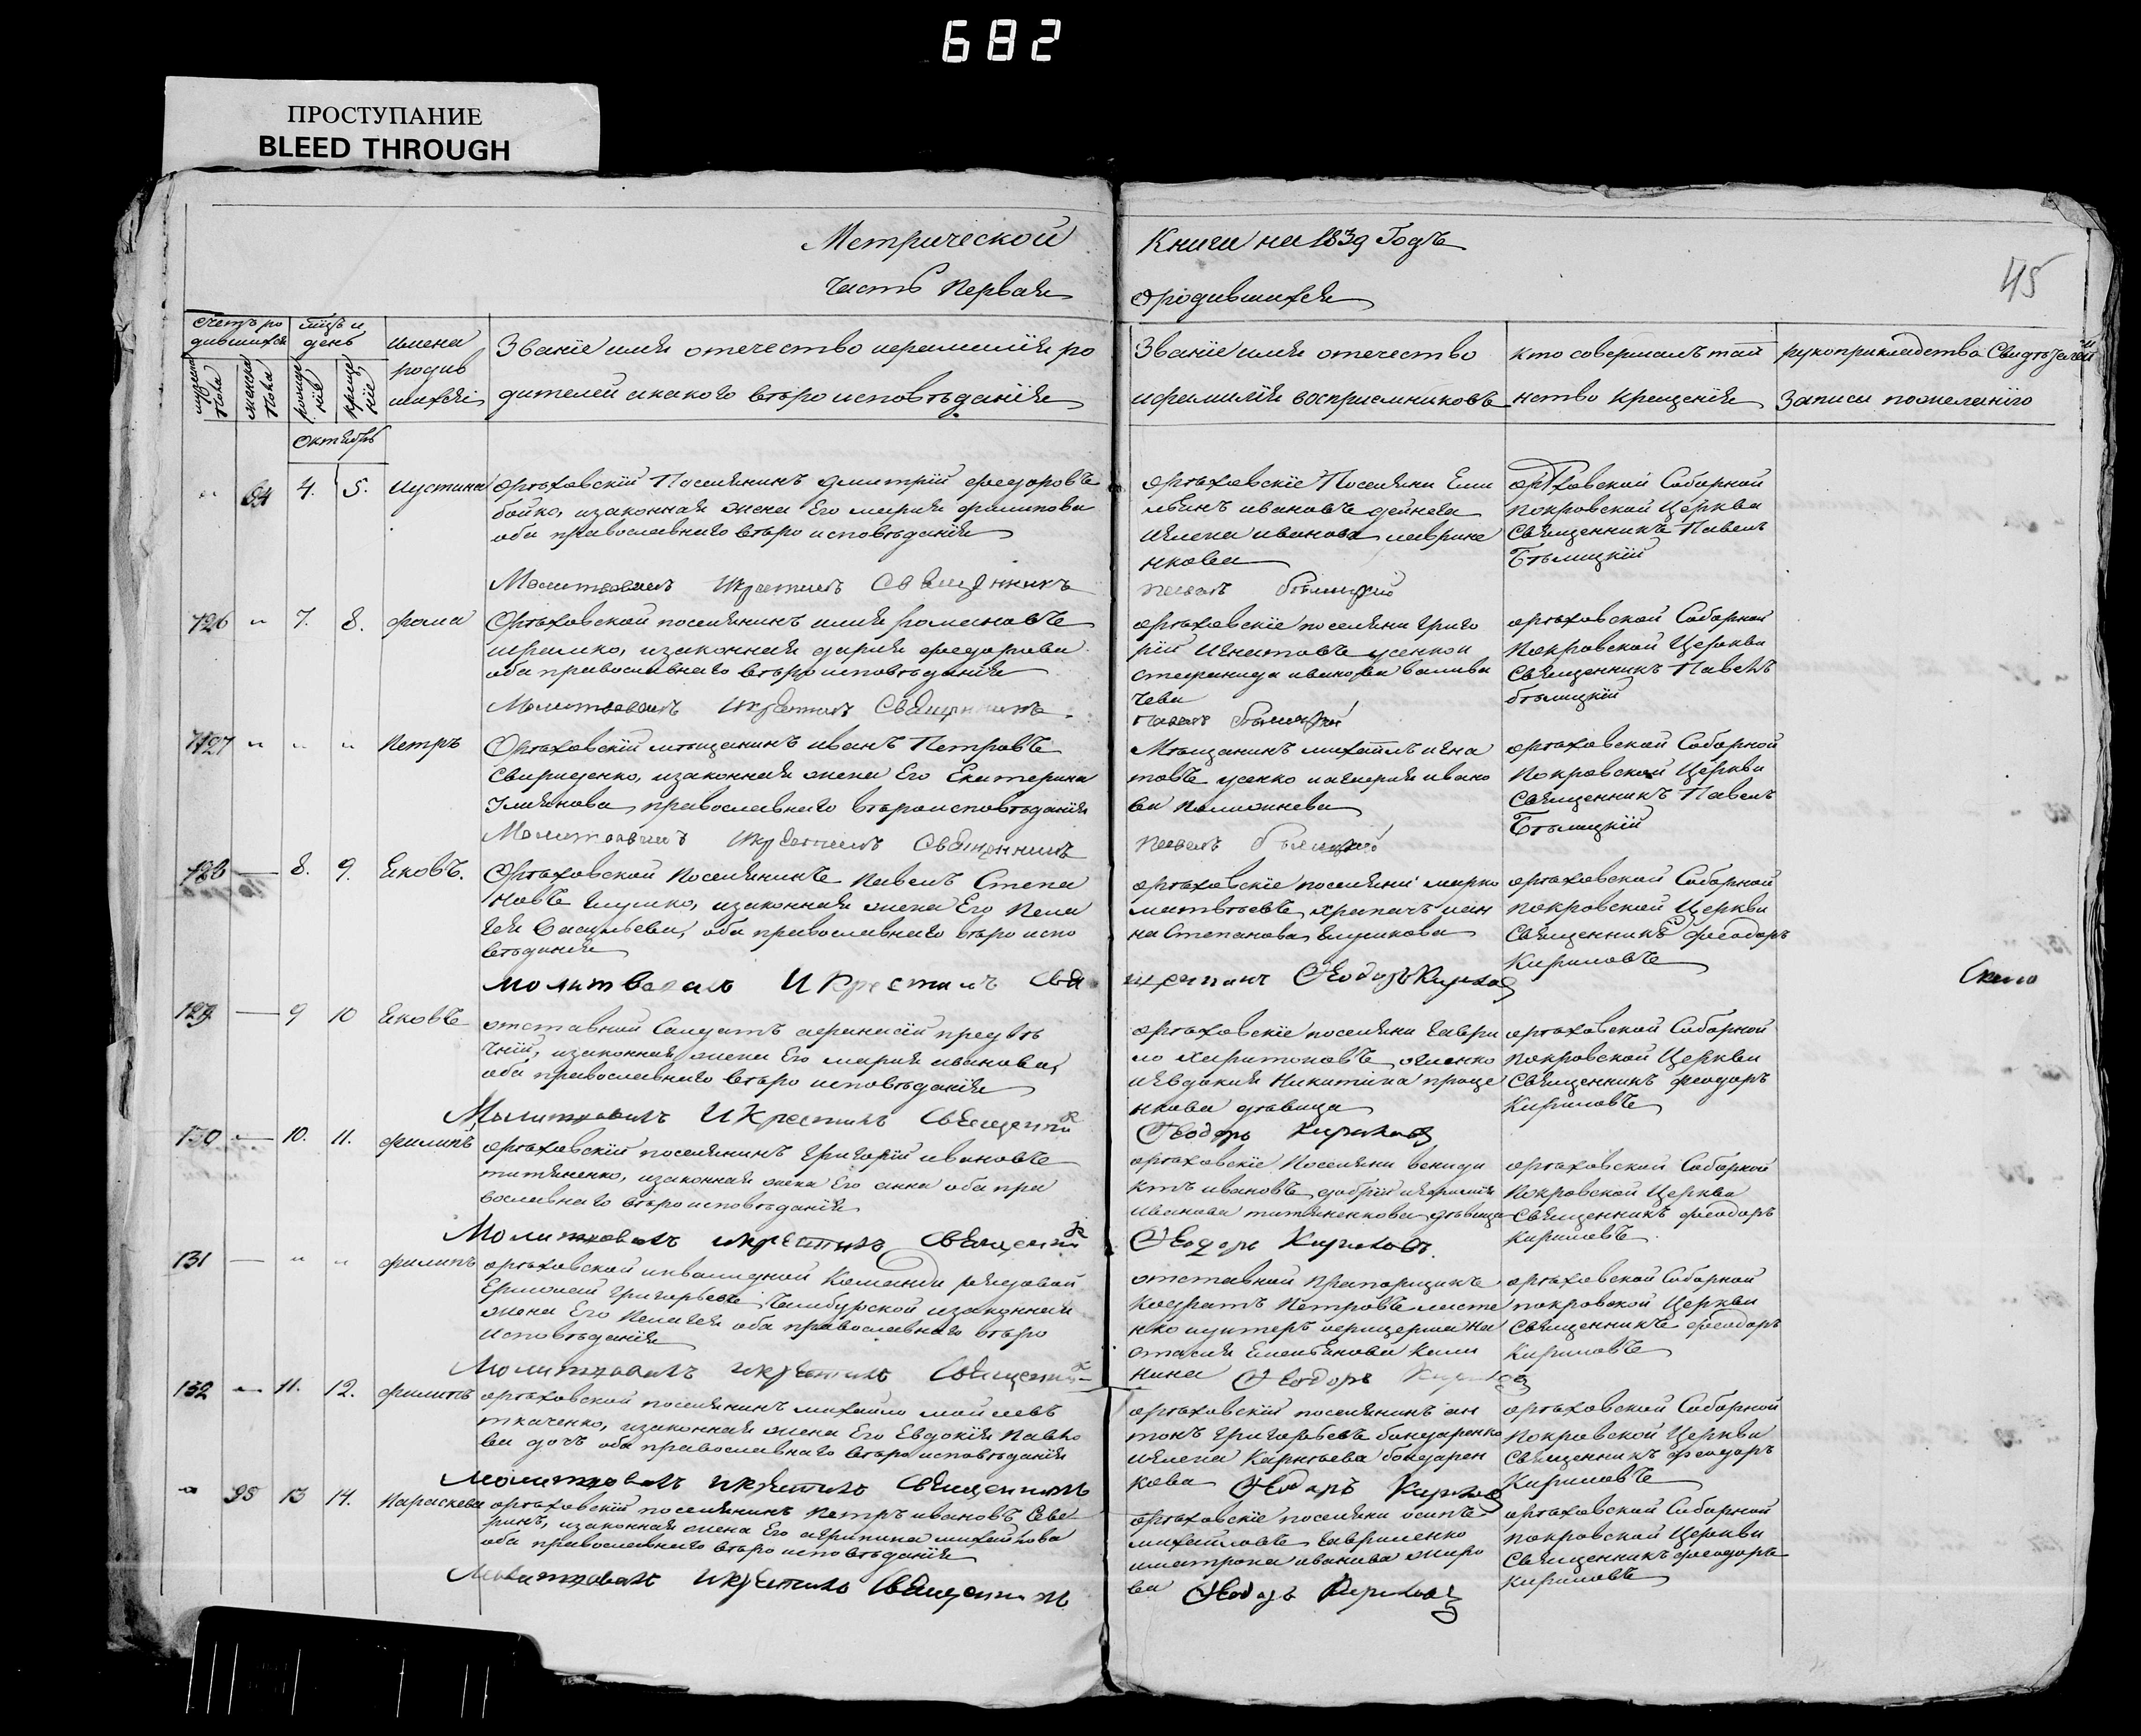 682
ПРОСТУПАНИЕ
BLEED THROUGH
Метрической
Книги на 1839 Годъ
45
Часть Первая
о родившихся
счетъ ро
дившихся
мужеска
пола
женска
пола
мѣцъ и
день
рожде
нія
креще
нія
имена
родив
шихся
Званіе имя отечество ифамилія ро
дителей икакого вѣро исповѣданія
Званіе имя отечество
ифамилія восприемниковъ
кто совершалъ таи
нство крещенія
рукоприкладство Свидѣтелей
Записи пожеланію
октябрь
„ 94 4. 5. Иустина
орѣховскій Поселянинъ димитрій федоровъ
бойко, изаконная жена Его мария филипова
оба православнаго вѣро исповѣданія
Молитвовалъ Икрестилъ Священникъ
орѣховскіе Поселяни Еми
льянъ ивановъ дейнега
иелена иванова лаврине
нкова
павелъ бѣлицкій
орѣховской Соборной
покровской Церква
Священникъ Павелъ
Бѣлицкій
126 „ 7. 8. фома
Орѣховской поселянинъ илия романовъ
изаконная дария федорова
оба православнаго вѣро исповѣданія
Молитвовалъ Икрестилъ Священникъ
орѣховскіе поселяни григо
рій Игнатовъ усенко и
стефанида иванова
чева
Павелъ бѣлицкій
орѣховской Соборной
Покровской Церкви
Священникъ Павелъ
бѣлицкій
127 „ „ „ Петръ
Орѣховскій мѣщанинъ иванъ Петровъ
Свириденко, изаконная жена Его Екатерина
Улиянова, православнаго вѣроисповѣданія
Молитвовалъ Икрестилъ Священникъ
Мѣщанинъ михаилъ игна
товъ усенко ивано
ва
павелъ бѣлицкій
орѣховской Соборной
Покровской Церкви
Священникъ Павелъ
Бѣлицкій
128 — 8. 9. Яковъ.
Орѣховской Поселянинъ Павелъ Степа
новъ глушко, изаконная жена Его Пела
гея Васильева, оба православнаго вѣро испо
вѣданія
молитвовалъ И Крестилъ Свя
орѣховскіе поселяни марко
матвѣевъ храпачъ иан
на Степанова глушкова
Феодоръ Кириловъ
орѣховской Соборной
покровской Церкви
Священникъ феодоръ
Кириловъ
129 — 9 10 Яковъ
отставной Салдатъ афанасій
изаконная жена Его мария иванова,
оба православнаго вѣро исповѣданія
Молитвовалъ И Крестилъ Священник
орѣховскіе поселяни гаври
ло харитоновъ
иевдокия Никитина проце
нкова дѣвица
Феодоръ Кириловъ
орѣховской Соборной
покровской Церкви
Священникъ феодоръ
Кириловъ
130 — 10. 11. филипъ
орѣховскій поселянинъ григорій ивановъ
титяненко, изаконная жена Его анна оба пра
вославнаго вѣроисповѣданія
Молитвовалъ икрестилъ Священник
орѣховскіе Поселяни венеди
ктъ ивановъ добрій
иванова титяненкова дѣвица
Феодоръ Кириловъ.
орѣховской Соборной
Покровской Церква
Священникъ феодоръ
Кириловъ
131 — „ „ филипъ
орѣховской инвалидной Команди рядовой
Ермолай григорьевъ изаконная
жена Его Пелагея оба православнаго вѣро
исповѣданія
Молитвовалъ икрестилъ Священник
отставной Прапорщикъ
Кодратъ Петровъ листе
нко На
стасия Емельянова Кали
нина Феодоръ Кириловъ
орѣховской Соборной
покровской Церкви
Священникъ феодоръ
Кириловъ
132 — 11. 12. филипъ
орѣховской поселянинъ михайло мойсеевъ
ткаченко, изаконная жена Его Евдокія Павло
ва дочъ оба православнаго вѣро исповѣданія
Молитвовалъ икрестилъ Священникъ
орѣховскій поселянинъ ан
тонъ григорьевъ бондаренко
иелена Карпѣева бондарен
кова Феодоръ Кириловъ
орѣховской Соборной
Покровской Церкви
Священникъ феодоръ
Кириловъ
„ 95 13 14. Параскева
орѣховскій поселянинъ Петръ ивановъ Севе
ринъ, изаконная жена Его агрипина михайлова
оба православнаго вѣро исповѣданія
Молитвовалъ икрестилъ Священникъ
орѣховскіе поселяни осипъ
михайловъ гавриленко
иматрона иванова жиро
ва Феодоръ Кириловъ
орѣховской Соборной
покровской Церкви
Священникъ феодоръ
Кириловъ